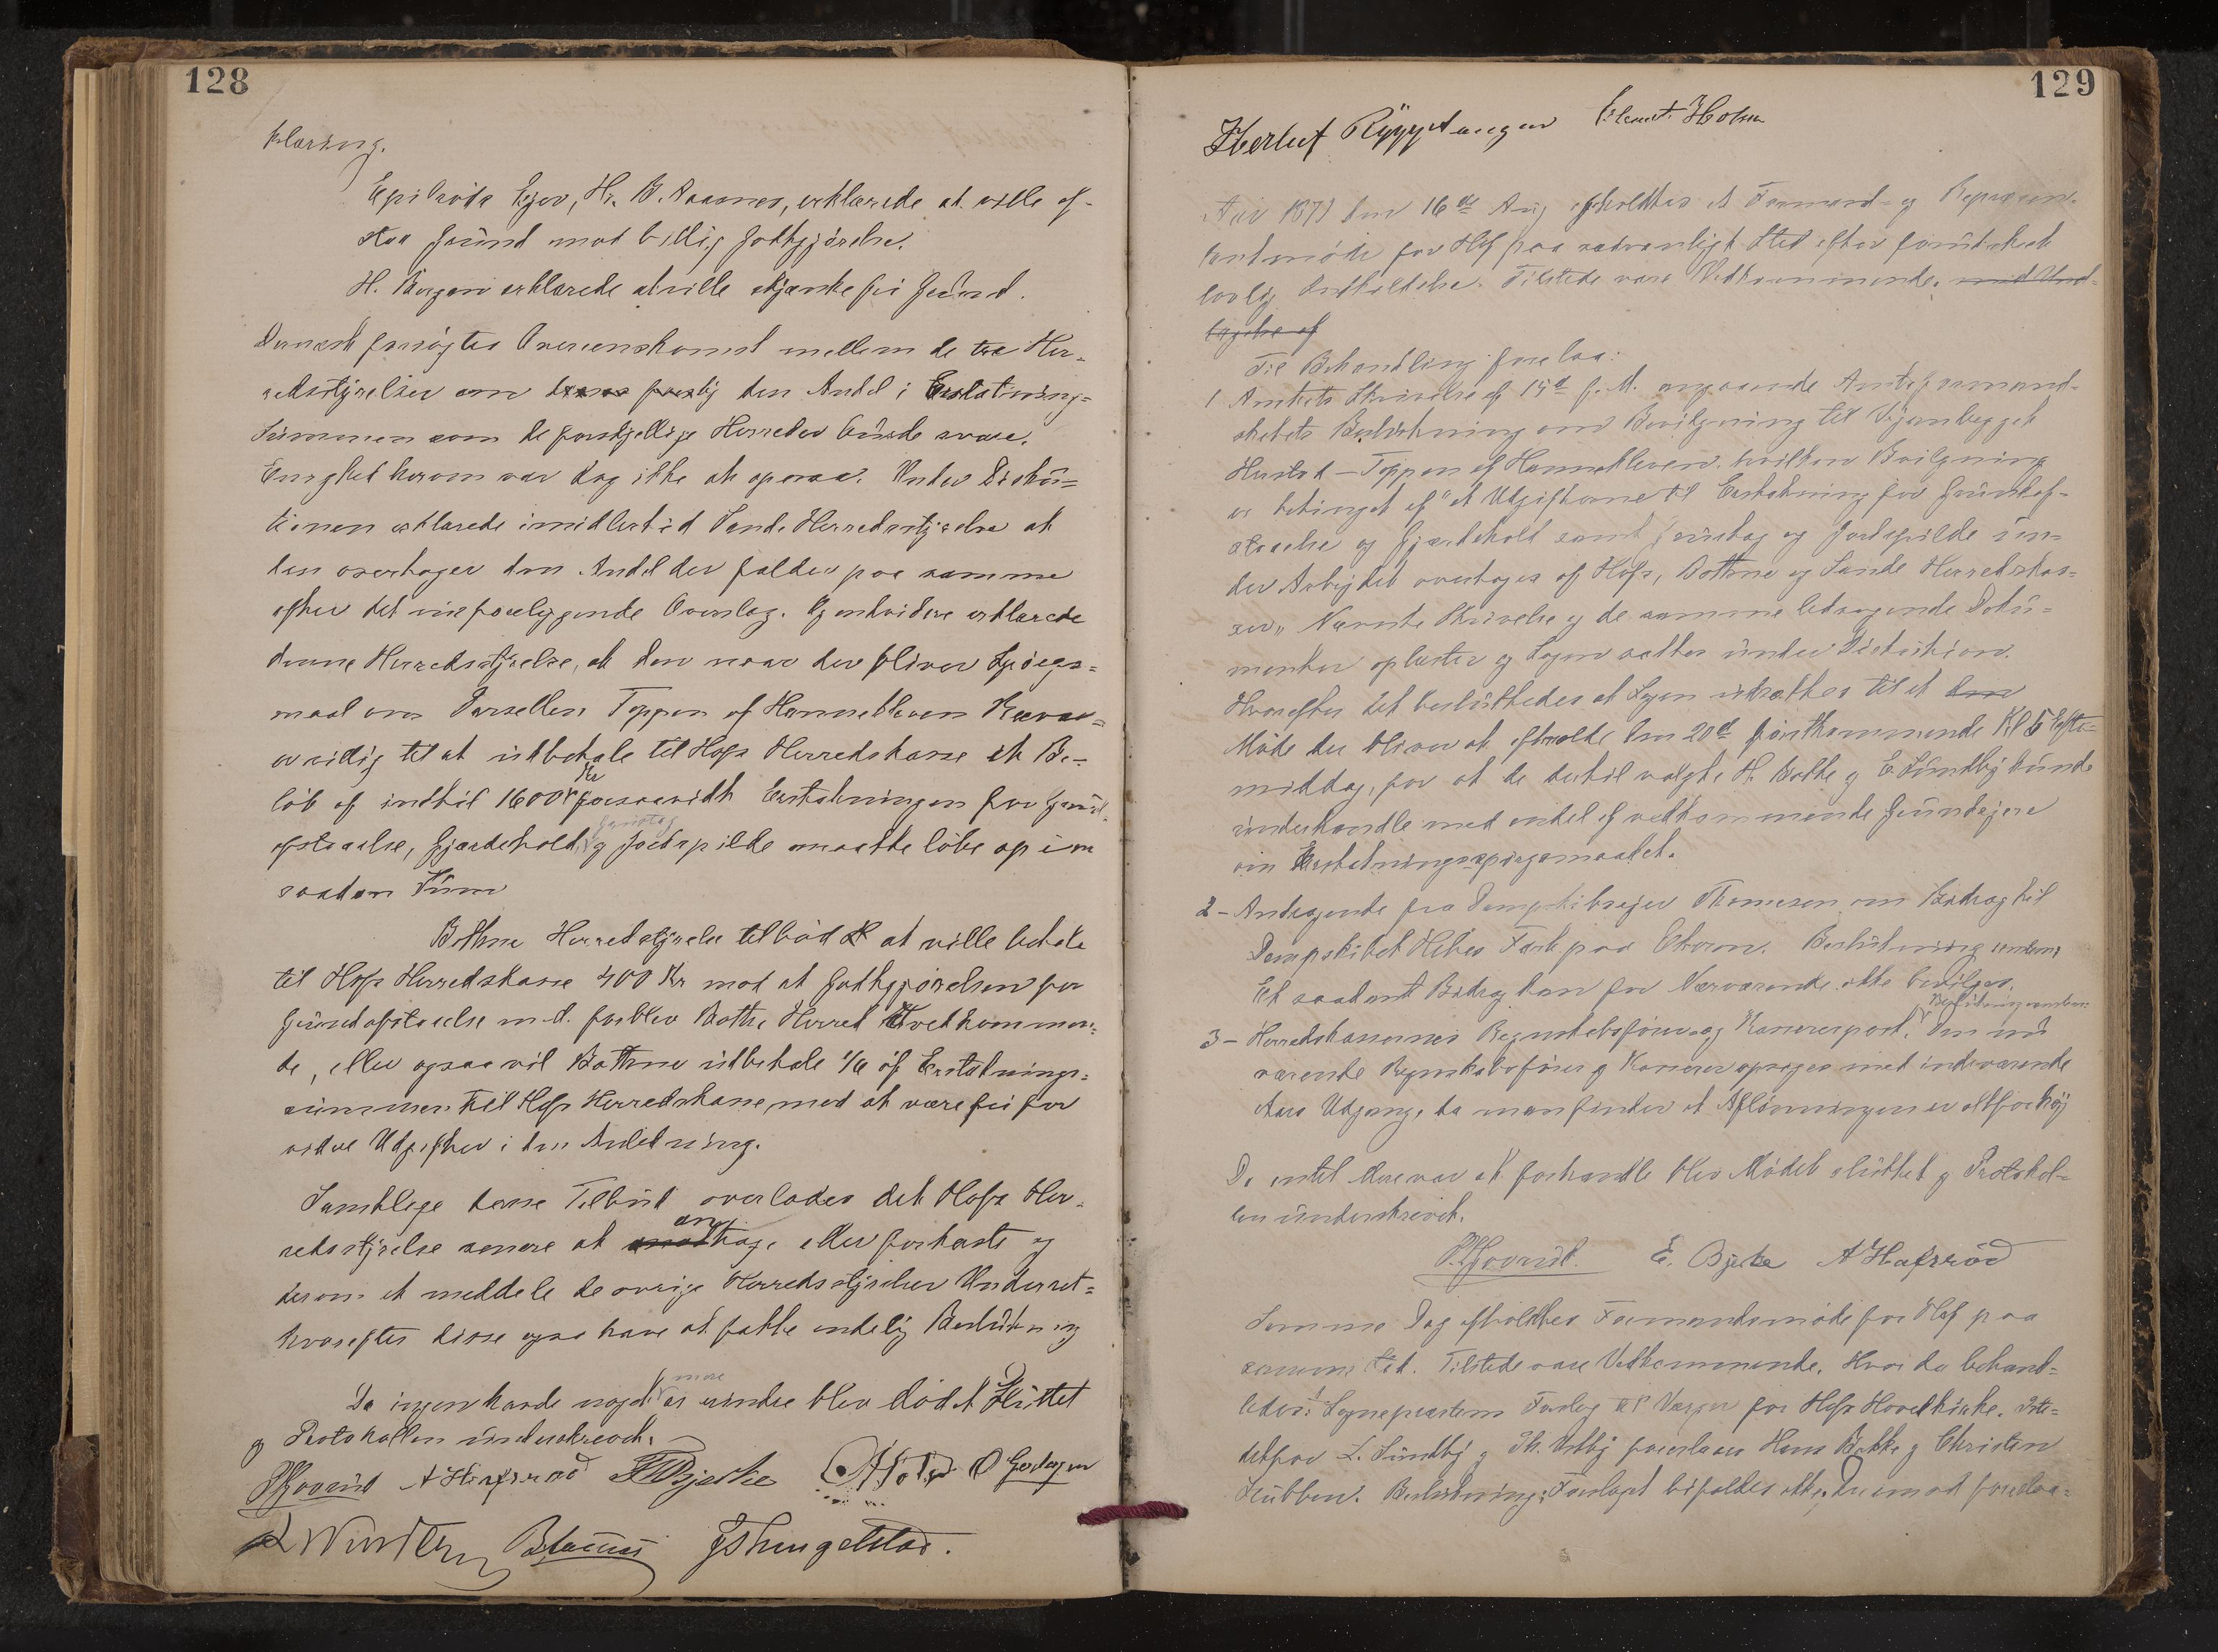 128
klaring.
Epilröds Ejer, Hr. B. Aaanes, erklærede at ville af-
staa Grund mod billig Godtgjörelse.
H. Bergan erklærede at ville skjænke fri Grund.
Dernæst forsögtes Overenskomst mellem de tre Her-
redsstyrelser om den Andel i Erstatnings-
Summen som de forskjellige Herreder burde svare.
Enighed herom var dog ikke at opnaa. Under Disku-
tionen erklærede imidlertid Sande Herredsstyrelse at
den overtager den Andel der falder paa samme
efter det nu foreliggende Overslag. Endvidere erklærede
denne Herredsstyrelse, at den naar der bliver Spörgs-
maal om Parsellen Toppen af Hanekleven
er villig til at udbetale til Hofs Herredskasse et Be-
löb af indtil 1600 Kr forsaavidt Erstatningen for Grund-
afstaaelse, Gjærdehold, Grustag og Jordspilde maatte löbe op i en
saadan Sum
Bothne Herredsstyrelse tilböd at ville betale
til Hofs Herredskasse 400 Kr mod at Godtgjörelsen for
Grundafstaaelse m.d. forblev Bothne Herred uvedkommen-
de, eller ogsaa vil Bothne udbetale 1/6 af Erstatnings-
summen til Hofs Herredskasse, mod at være fri for
vidre Udgifter i den Anledning.
Samtlige disse Tilbud overlades det Hofs Her-
redsstyrelse senere at antage eller forkaste og
derom at meddele de övrige Herredsstyrelser Underret-
hvorefter disse ogsaa have at fatte endelig Beslutning
Da ingen havde noget mere at erindre blev Mödet Sluttet
og Protokollen underskrevet.
A Hafsröd
129
Herluf Ryggetangen Clemt. Holm
Aar 187 den 16de Aug afholdtes et Formand- og Repræsen-
tantmöde for Hof paa sædvanligt Sted efter forudskeet
lovlig Indkaldelse. Tilstede vare Vedkommende, med Und-
tagelse af
Til Behandling forelaa:
1 Amtets Skrivelse af 15de f. M. angaaende Amtsformand-
skabets Beslutning om Bevilgning til Vejanlægget
Hustad - Toppen af Hanekleven, hvilken Bevilgning
er betinget af "at Udgifterne til Erstatning for Grundaf-
staaelse og Gjærdehold samt Grustag og Jordspilde un-
der Arbejdet overtages af Hofs, Bothne og Sande Herredskas-
ser". Nævnte Skrivelse og de samme ledsagende Doku-
menter oplæstes og Sagen sattes under Diskution.
Hvorefter det besluttedes at Sagen udsættes til et den
Möde der bliver at afholde den 20de förstkommende Kl 5 Efter-
middag, for at de dertil valgte H. Bakke og E. Sundby kunde
underhandle med endel af vedkommende Grundejere
om Erstatningsspörgsmaalet.
2 - Andragende fra Dampskibsejer Thomesen om Bidrag til
Dampskibet Hebes Fart paa Ekeren. Beslutning eenstem.
Et saadant Bidrag kan for Nærværende ikke bevilges.
3 - Herredskassernes Regnskabsförer- og Kasererpost. Beslutning eenstem. Den nu
værende Regnskabsförer og Kaserer opsiges med indeværende
Aars Udgang, da man finder at Aflönningen er altfor höj
Da intet mere var at forhandle blev Mödet sluttet og Protokol-
len underskrevet.
E. Bjerke A Hafsröd
Samme Dag afholdtes Formandsmöde for Hof paa
samme Sted. Tilstede vare Vedkommende. Hvor da behand-
ledes: 1 Sognepræstens Forslag til Værger for Hofs Hovedkirke. Iste-
detfor L. Sundby og Th. Valby foreslaaes Hans Bakke og Christen
Stubben. Beslutning: Forslaget bifaldes ikke; Derimod foreslaa-